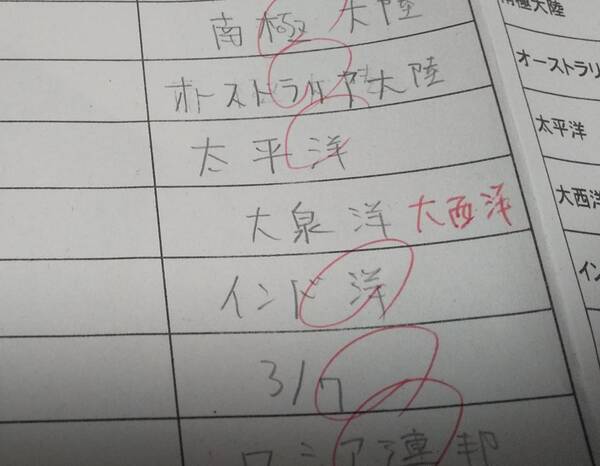 南極大陸
南極大陸
オーストラリア大陸
オーストラリ
太平洋
太平洋
大泉洋 大西洋
大西洋
インド洋
イン
ロシア連邦